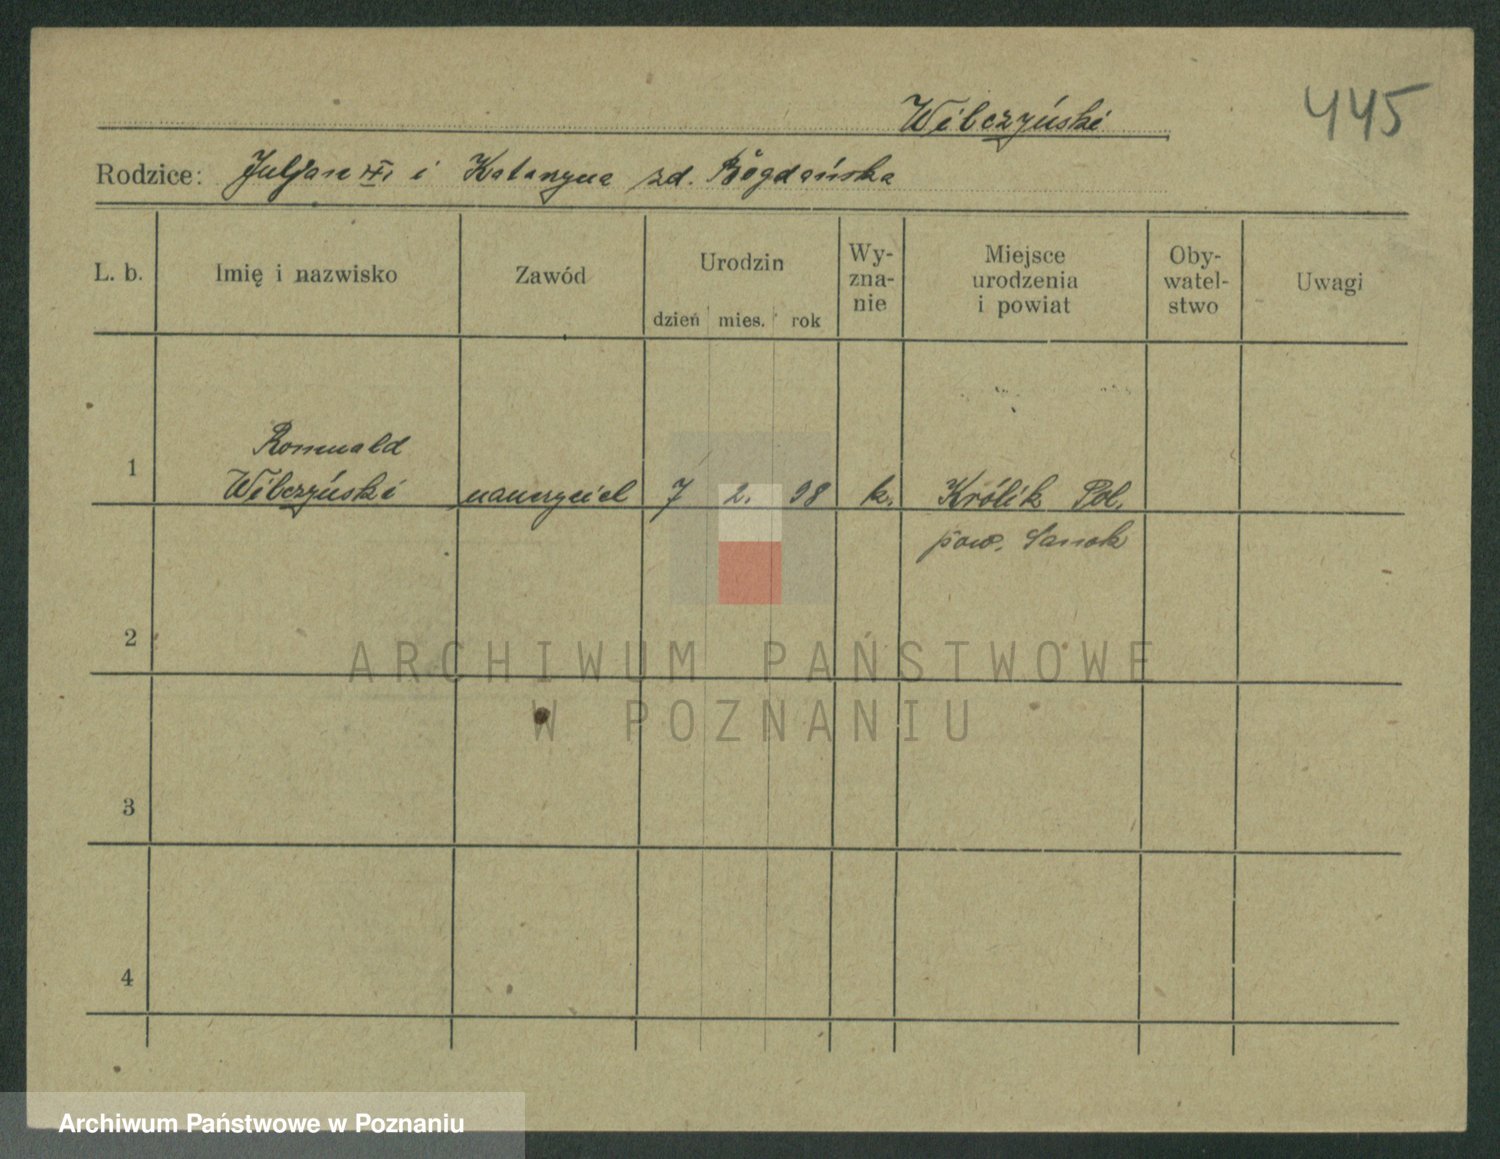 Wilczyński
445
Rodzice: Juljan i Katarzyna zd. Bogdańska
L. b.
Imię i nazwisko
Zawód
Urodzin
dzień mies. rok
Wy-
zna-
nie
Miejsce
urodzenia
i powiat
Oby-
watel-
stwo
Uwagi
Romuald
1 Wilczyński nauczyciel 7 2. 98 k. Królik Pol.
pow. Sanok
2
ARCHIWUM PAŃSTWOWE
W POZNANIU
3
4
Archiwum Państwowe w Poznaniu